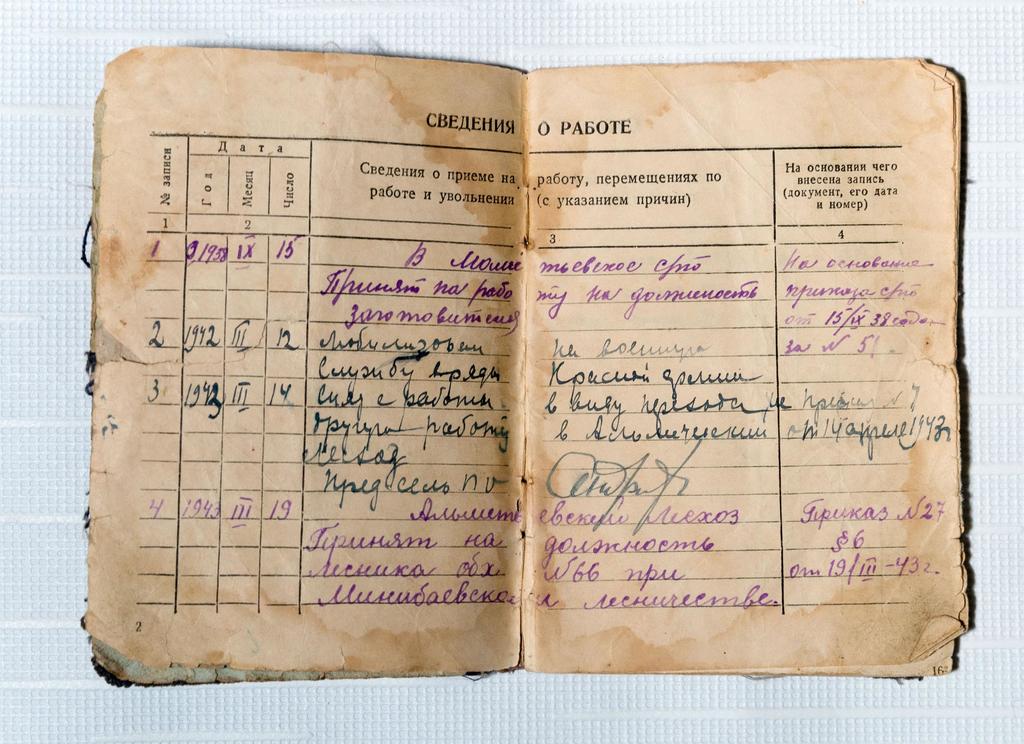 СВЕДЕНИЯ О РАБОТЕ
№ записи
Дата
Год
Месяц
Число
Сведения о приеме на работу, перемещениях по
работе и увольнении (с указанием причин)
На основании чего
внесена запись
(документ, его дата
и номер)
1 2 3 4
1 1938 IX 15 В На основание
Принят на работу на должность приказа
заготовителя от 15/IX 38 года
2 1942 III 12 Мобилизован на военную за № 51.
службу в ряды Красной армии
3 1943 III 14 Снят с работы в виду перехода № 7
другую работу в от 14 апреля 1943 г
Лесхоз
Пред сель по
4 1943 III 19 Альметьевский лесхоз Приказ № 27
Принят на должность § 6
лесника обх № 66 при от 19/III-43 г.
Минибаевской лесничестве.
2
16